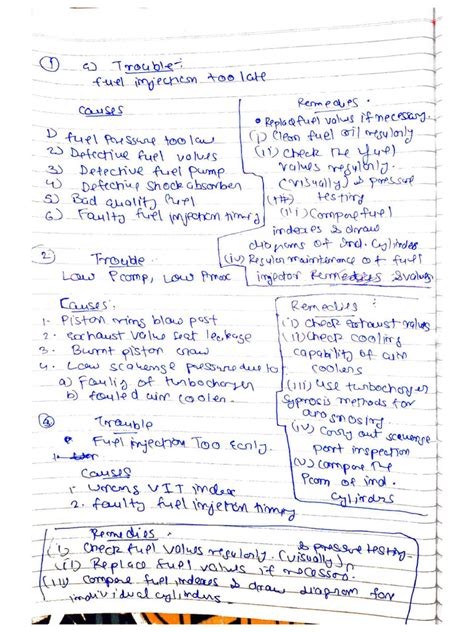 ① a) Trouble:-
fuel injection too late
Causes
1) fuel pressure too law
2) Defective fuel valves
3) Defective fuel pump
4) Defective shock absorber
5) Bad quality fuel
6) Faulty fuel injection timing
Remedies.
• Replace fuel valves if necessary.
(i) Clean fuel oil regulonly
(ii) check the fuel
values regulonly.
(visually) & pressure
testing
(iii) Compare fuel
indexes & draw
diagrams of ind. cylinders
(iv) Regular maintenance of fuel
injector Remedies & valves
2. Trouble
Low Pcomp, Low Pmax
Causes.
1. Piston ring blow past
2. exhaust valve seat leakage
3. Burnt piston crown
4. Low scavenge pressure due to
a) Faulty of turbocharger
b) fouled air cooler.
Remedies:
(i) check exhaust valves
(ii) check cooling
capability of air
coolers
(iii) use turbocharger
methods for
(iv) Carry out scavenge
port inspection
(v) Compare the
Pcom of ind.
cylinders
④ Trouble
• Fuel injection Too Early.
Causes
1. wrong VIT index
2. faulty fuel injeton timing
Remedies
(i) Check fuel valves regulonly. (visually) & pressure testing
(ii) Replace fuel valves if necessary.
(iii) Compare fuel indexes & draw diagram for
individual cylinders.